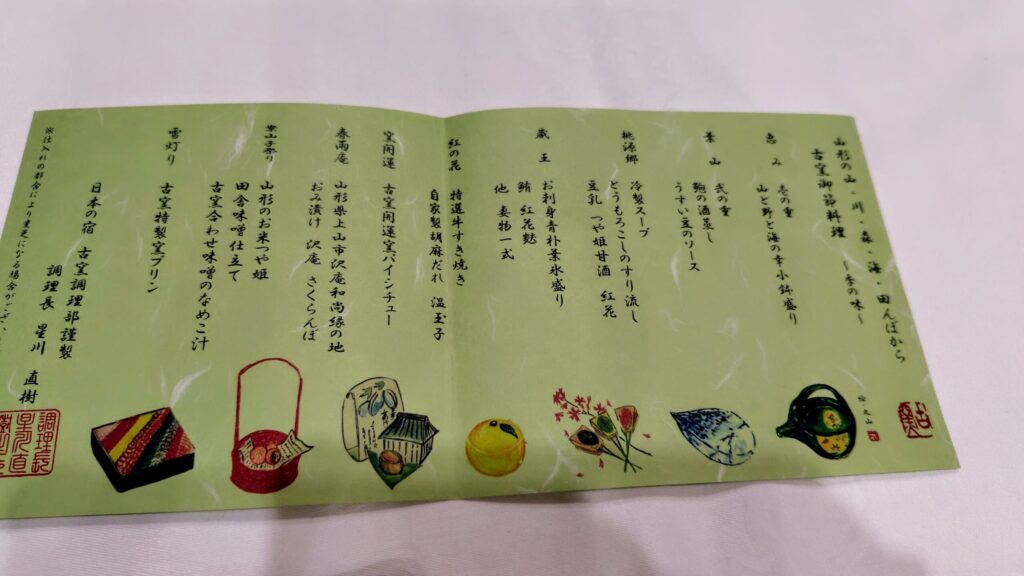 山形の山・川・森・海・田んぼから
古窯御節料理 ～季の味～
恵み 壱の重
山と野と海の幸小鉢盛り
葉山 弐の重
鮑の酒蒸し
うすい豆のソース
桃源郷 冷製スープ
とうもろこしのすり流し
豆乳 つや姫甘酒 紅花
蔵王 お刺身青朴葉氷盛り
鮪 紅花麩
他 妻物一式
紅の花 特選牛すき焼き
自家製胡麻だれ 温玉子
窯開運 古窯開運窯パイシチュー
春雨庵 山形県上山市沢庵和尚縁の地
おみ漬け 沢庵 さくらんぼ
案山子祭り 山形のお米つや姫
田舎味噌仕立て
古窯合わせ味噌のなめこ汁
雪灯り 古窯特製窯プリン
日本の宿 古窯調理部謹製
調理長 星川 直樹
※仕入れの都合により変更になる場合がござ
絵・文山